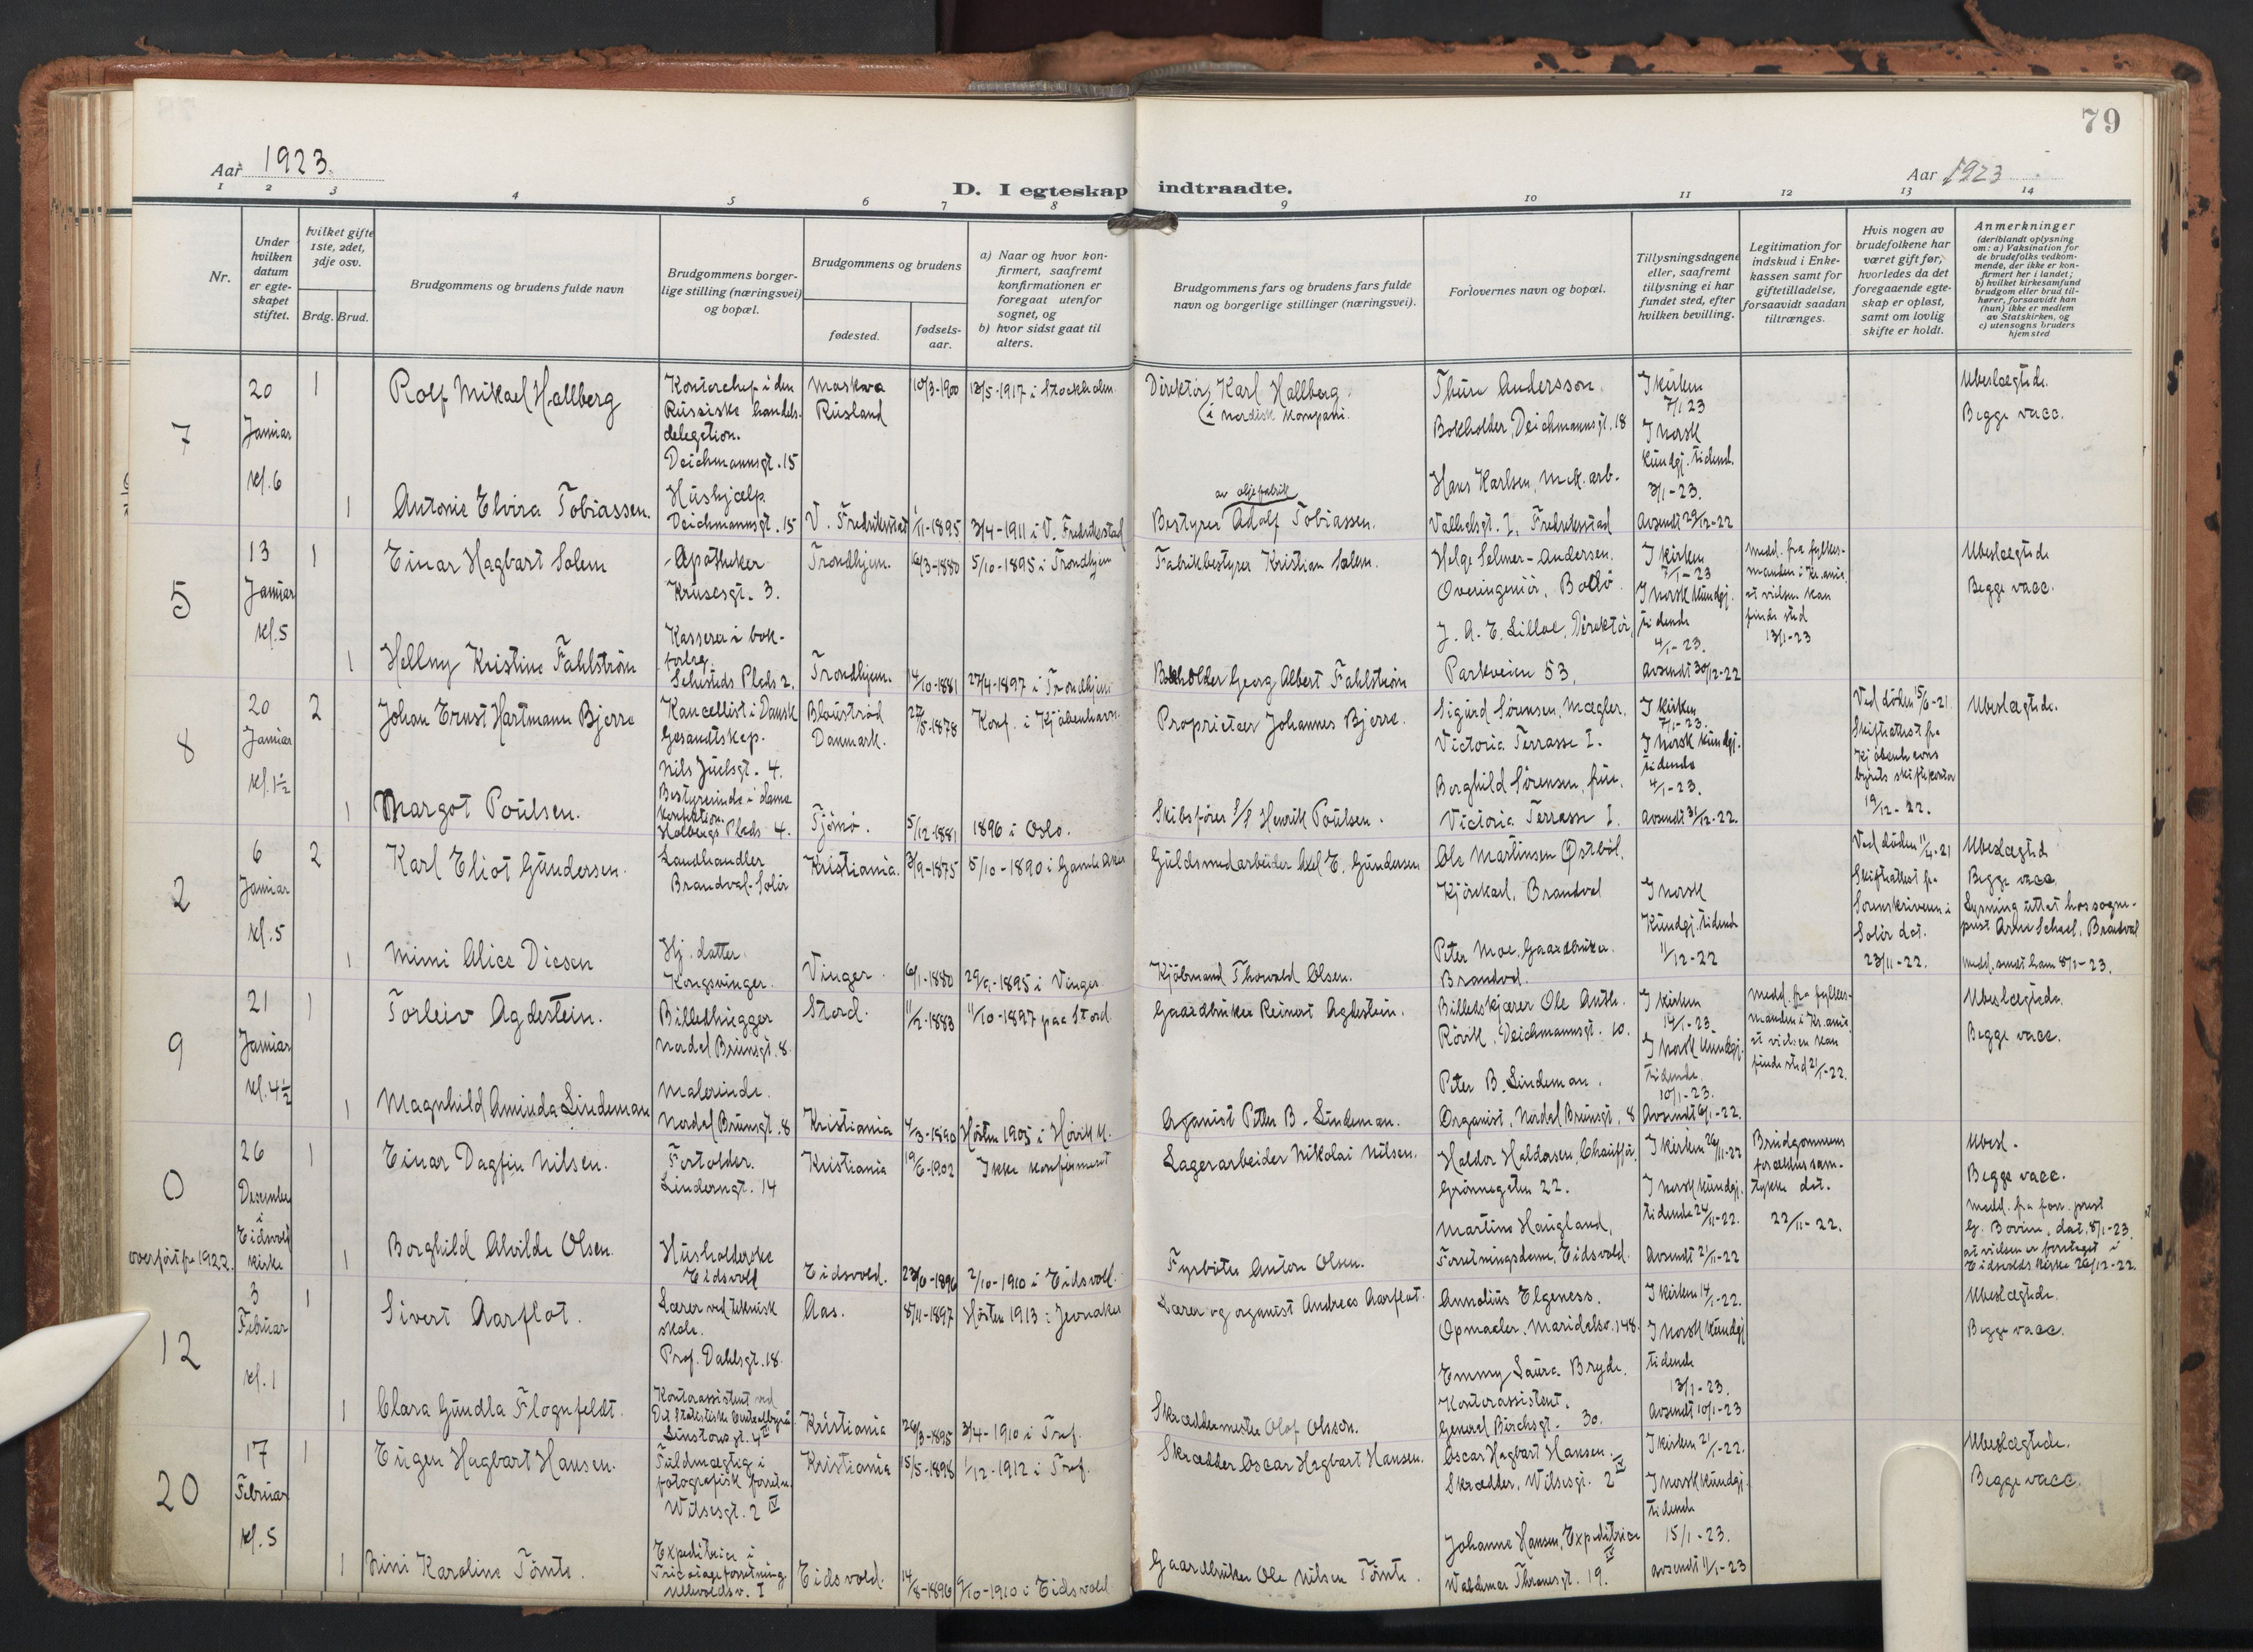 79
Aar 1923.
Aar 1923
D. I egteskap indtraadte.
1 2 3 4 5 6 7 8 9 10 11 12 13 14
Nr.
Under hvilken datum er egteskapet stiftet.
hvilket gifte 1ste, 2det, 3dje osv.
Brdg. Brud.
Brudgommens og brudens fulde navn
Brudgommens borgerlige stilling (næringsvei) og bopæl.
Brudgommens og brudens
fødested.
fødselsaar.
a) Naar og hvor konfirmert, saafremt konfirmationen er foregaat utenfor sognet, og
b) hvor sidst gaat til alters.
Brudgommens fars og brudens fars fulde navn og borgerlige stillinger (næringsvei).
Forlovernes navn og bopæl.
Tillysningsdagene eller, saafremt tillysning ei har fundet sted, efter hvilken bevilling.
Legitimation for indskud i Enkekassen samt for giftetilladelse, forsaavidt saadan tiltrænges.
Hvis nogen av brudefolkene har været gift før, hvorledes da det foregaaende egteskap er opløst, samt om lovlig skifte er holdt.
Anmerkninger
(deriblandt oplysning om: a) Vaksination for de brudefolks vedkommende, der ikke er konfirmert her i landet; b) hvilket kirkesamfund brudgom eller brud tilhører, forsaavidt han (hun) ikke er medlem av Statskirken, og c) utensogns bruders hjemsted
7
20 Januar kl. 6
1
Rolf Mikael Hallberg
Kontorchef i den Russiske handelsdelegation. Deichmannsgt. 15
Moskva Rusland
10/3-1900
12/5-1917 i Stockholm
Direktør i Nordisk Kompani. Karl Hallberg
Thure Andersson. Bokholder, Deichmannsgt. 18
I kirken 7/1 23
I Norsk Kundgj. tidend. 3/1-23.
Avsendt 29/12-22
Ubeslægtede. Begge vacc.
1
Antonie Elvira Tobiassen.
Hushjælp Deichmannsgt. 15
V. Fredrikstad
1/11-1895
3/4-1911 i V. Fredriksstad
Bestyrer av oljefabrik Adolf Tobiassen.
Hans Karlsen, mek. arb. Valhalsgt. I, Fredriksstad
5
13 Januar kl. 5
1
Einar Hagbart Solem
Apotheker Krusesgt. 3.
Trondhjem.
16/3-1880
5/10-1895 i Trondhjem
Fabrikbestyrer Kristian Solem.
Helge Selmer-Andersen. Overingeniør, Bodø.
I kirken 7/1-23
I Norsk Kundgj. tidende 4/1-23.
Avsendt 30/12-22
Medd. fra fylkesmanden i Kr.ania at vielsen kan finde sted 13/1-23
Ubeslægtede Begge vacc.
1
Hellny Kristine Fahlstrøm
Kasserer i bokforlag. Schusteds Plads 2.
Trondhjem.
14/10-1881
27/4-1897 i Trondhjem
Bokholder Georg Albert Fahlstrøm
J. A. E. Lilloe, Direktør, Parkveien 53,
8
20 Januar kl. 1½
2
Johan Ernst Hartmann Bjerre
Kancellist i Dansk Gesandtskap. Nils Juelsgt. 4.
Blaustrød Danmark.
27/5-1878
Konf. i Kjøbenhavn.
Proprietær Johannes Bjerre.
Sigurd Sørensen, Mægler. Victoria Terrasse I.
I kirken 7/1-23.
I Norsk Kundgj. tidende 4/1-23.
Avsendt 31/12-22.
Ved døden 15/6-21 Skifteattest fra Kjøbenhavns byrets skiftekontor 19/12-22.
Ubeslægtede.
1
Margot Poulsen.
Bestyrerinde i damekonfektion. Holbergs Plads 4.
Tjømø.
5/12-1881
1896 i Oslo.
Skibsfører S/S Henrik Poulsen.
Borghild Sørensen, frue. Victoria Terrasse I.
2
6 Januar kl. 5
2
Karl Eliot Gundersen.
Landhandler Brandval-Solør
Kristiania.
3/9-1875
5/10-1890 i Gamle Aker
Guldsmedarbeider Axel E. Gundersen
Ole Martinsen Østbøl, Kjørekarl, Brandval
I Norsk Kundgj. tidend 11/12-22
Ved døden 11/4-21 Skifteattest fra Sorenskriveren i Solør dat. 23/11-22.
Ubeslægted Begge vacc. Lysning uttat hos sogneprest Arne Scheel, Brandval medd. sendt ham 8/1-23.
1
Mimi Alice Diesen
Hj. datter. Kongsvinger.
Vinger.
6/1-1880
29/9-1895 i Vinger.
Kjøbmand Thorvald Olsen.
Peter Moe, Gaardbruker. Brandval.
9
21 Januar kl. 4½
1
Torleiv Agdestein.
Billedhugger Nordal Brunsgt. 8.
Stord.
11/2-1883
11/10-1897 paa Stord.
Gaardbruker Reinert Agdestein.
Billedskjærer Ole Anth. Rövik, Deichmannsgt. 10.
I kirken 14/1-23.
I Norsk Kundgj. tidende. 10/1-23.
Avsendt 6/1-22.
Medd. fra fylkesmanden i Kr.ania at vielsen kan finde sted 21/1-22.
Ubeslægtede. Begge vacc.
1
Magnhild Aminda Lindeman
Malerinde. Nordal Brunsgt. 8
Kristiania
4/3-1890
Høsten 1905 i Høvik k.
Organist Peter B. Lindeman.
Peter B. Lindeman. Organist, Nordal Brunsgt. 8
0
overført fra 1922.
26 Desember i Eidsvold kirke
1
Einar Dagfin Nilsen.
Fortolder. Linderngt. 14
Kristiania
19/6-1902
Ikke konfirmert
Lagerarbeider Nikolai Nilsen.
Haldor Haldorsen, Chauffør, Grønnegaten 22.
I kirken 26/11-22
I Norsk Kundgj. tidende 24/11-22.
Avsendt 21/11-22
Brudgommens forældres samtykke dat. 22/11-22.
Ubesl. Begge vacc. Medd. fra forr. prest G. Bovim, dat. 8/1-23. at vielsen er foretaget i Eidsvolds kirke 26/12-22.
1
Borghild Alvilde Olsen.
Husholderske Eidsvold
Eidsvold.
23/6-1896
2/10-1910 i Eidsvold.
Fyrbøter Anton Olsen.
Martine Haugland, Forretningsdame, Eidsvold.
12
3 Februar kl. 1
1
Sivert Aarflot.
Lærer ved teknisk skole. Prof. Dahlsgt. 18.
Aas.
8/11-1897
Høsten 1913 i Jevnaker
Lærer og organist Andreas Aarflot.
Annolius Elgeness. Opmaaler. Maridalsv. 148.
I kirken 14/1-22.
I Norsk Kundgj tidende 13/1-23.
Avsendt 10/1-23
Ubeslægtede. Begge vacc.
1
Clara Gundla Flognfeldt.
Kontorassistent ved Det Statistiske Centralbyrå. Linstowsgt. 4 II
Kristiania
26/3-1895
3/4-1910 i Tref.
Skræddermester Olof Olsson.
Emmy Laura Bryde. Kontorassistent. General Birchsgt. 30.
20
17 Februar kl. 5
1
Eugen Hagbart Hansen.
Fuldmægtig i fotografisk forretn. Wilsesgt. 2 IV
Kristiania
15/5-1898
1/12-1912 i Tref.
Skrædder Oscar Hagbart Hansen.
Oscar Hagbart Hansen. Skrædder, Wilsesgt. 2 IV
I kirken 21/1-22.
I Norsk Kundgj. tidende 15/1-23.
Avsendt 11/1-23
Ubeslægtede. Begge vacc.
1
Nini Karoline Tømte.
Expeditrice i Tricotageforretning. Ullevoldsv. I
Eidsvold.
14/8-1896
9/10-1910 i Eidsvold
Gaardbruker Ole Nilsen Tømte.
Johanne Hansen, Expeditrice Waldemar Thranesgt. 19. IV